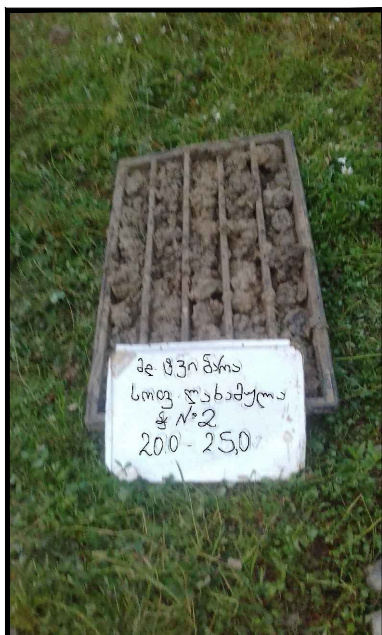 მდ ტვიბარა
სოფ ლახამულა
ჭ №2
20.0 - 25,0